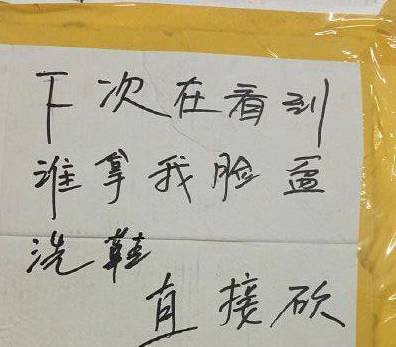 下次在看到
谁拿我脸盆
洗鞋
直接砍